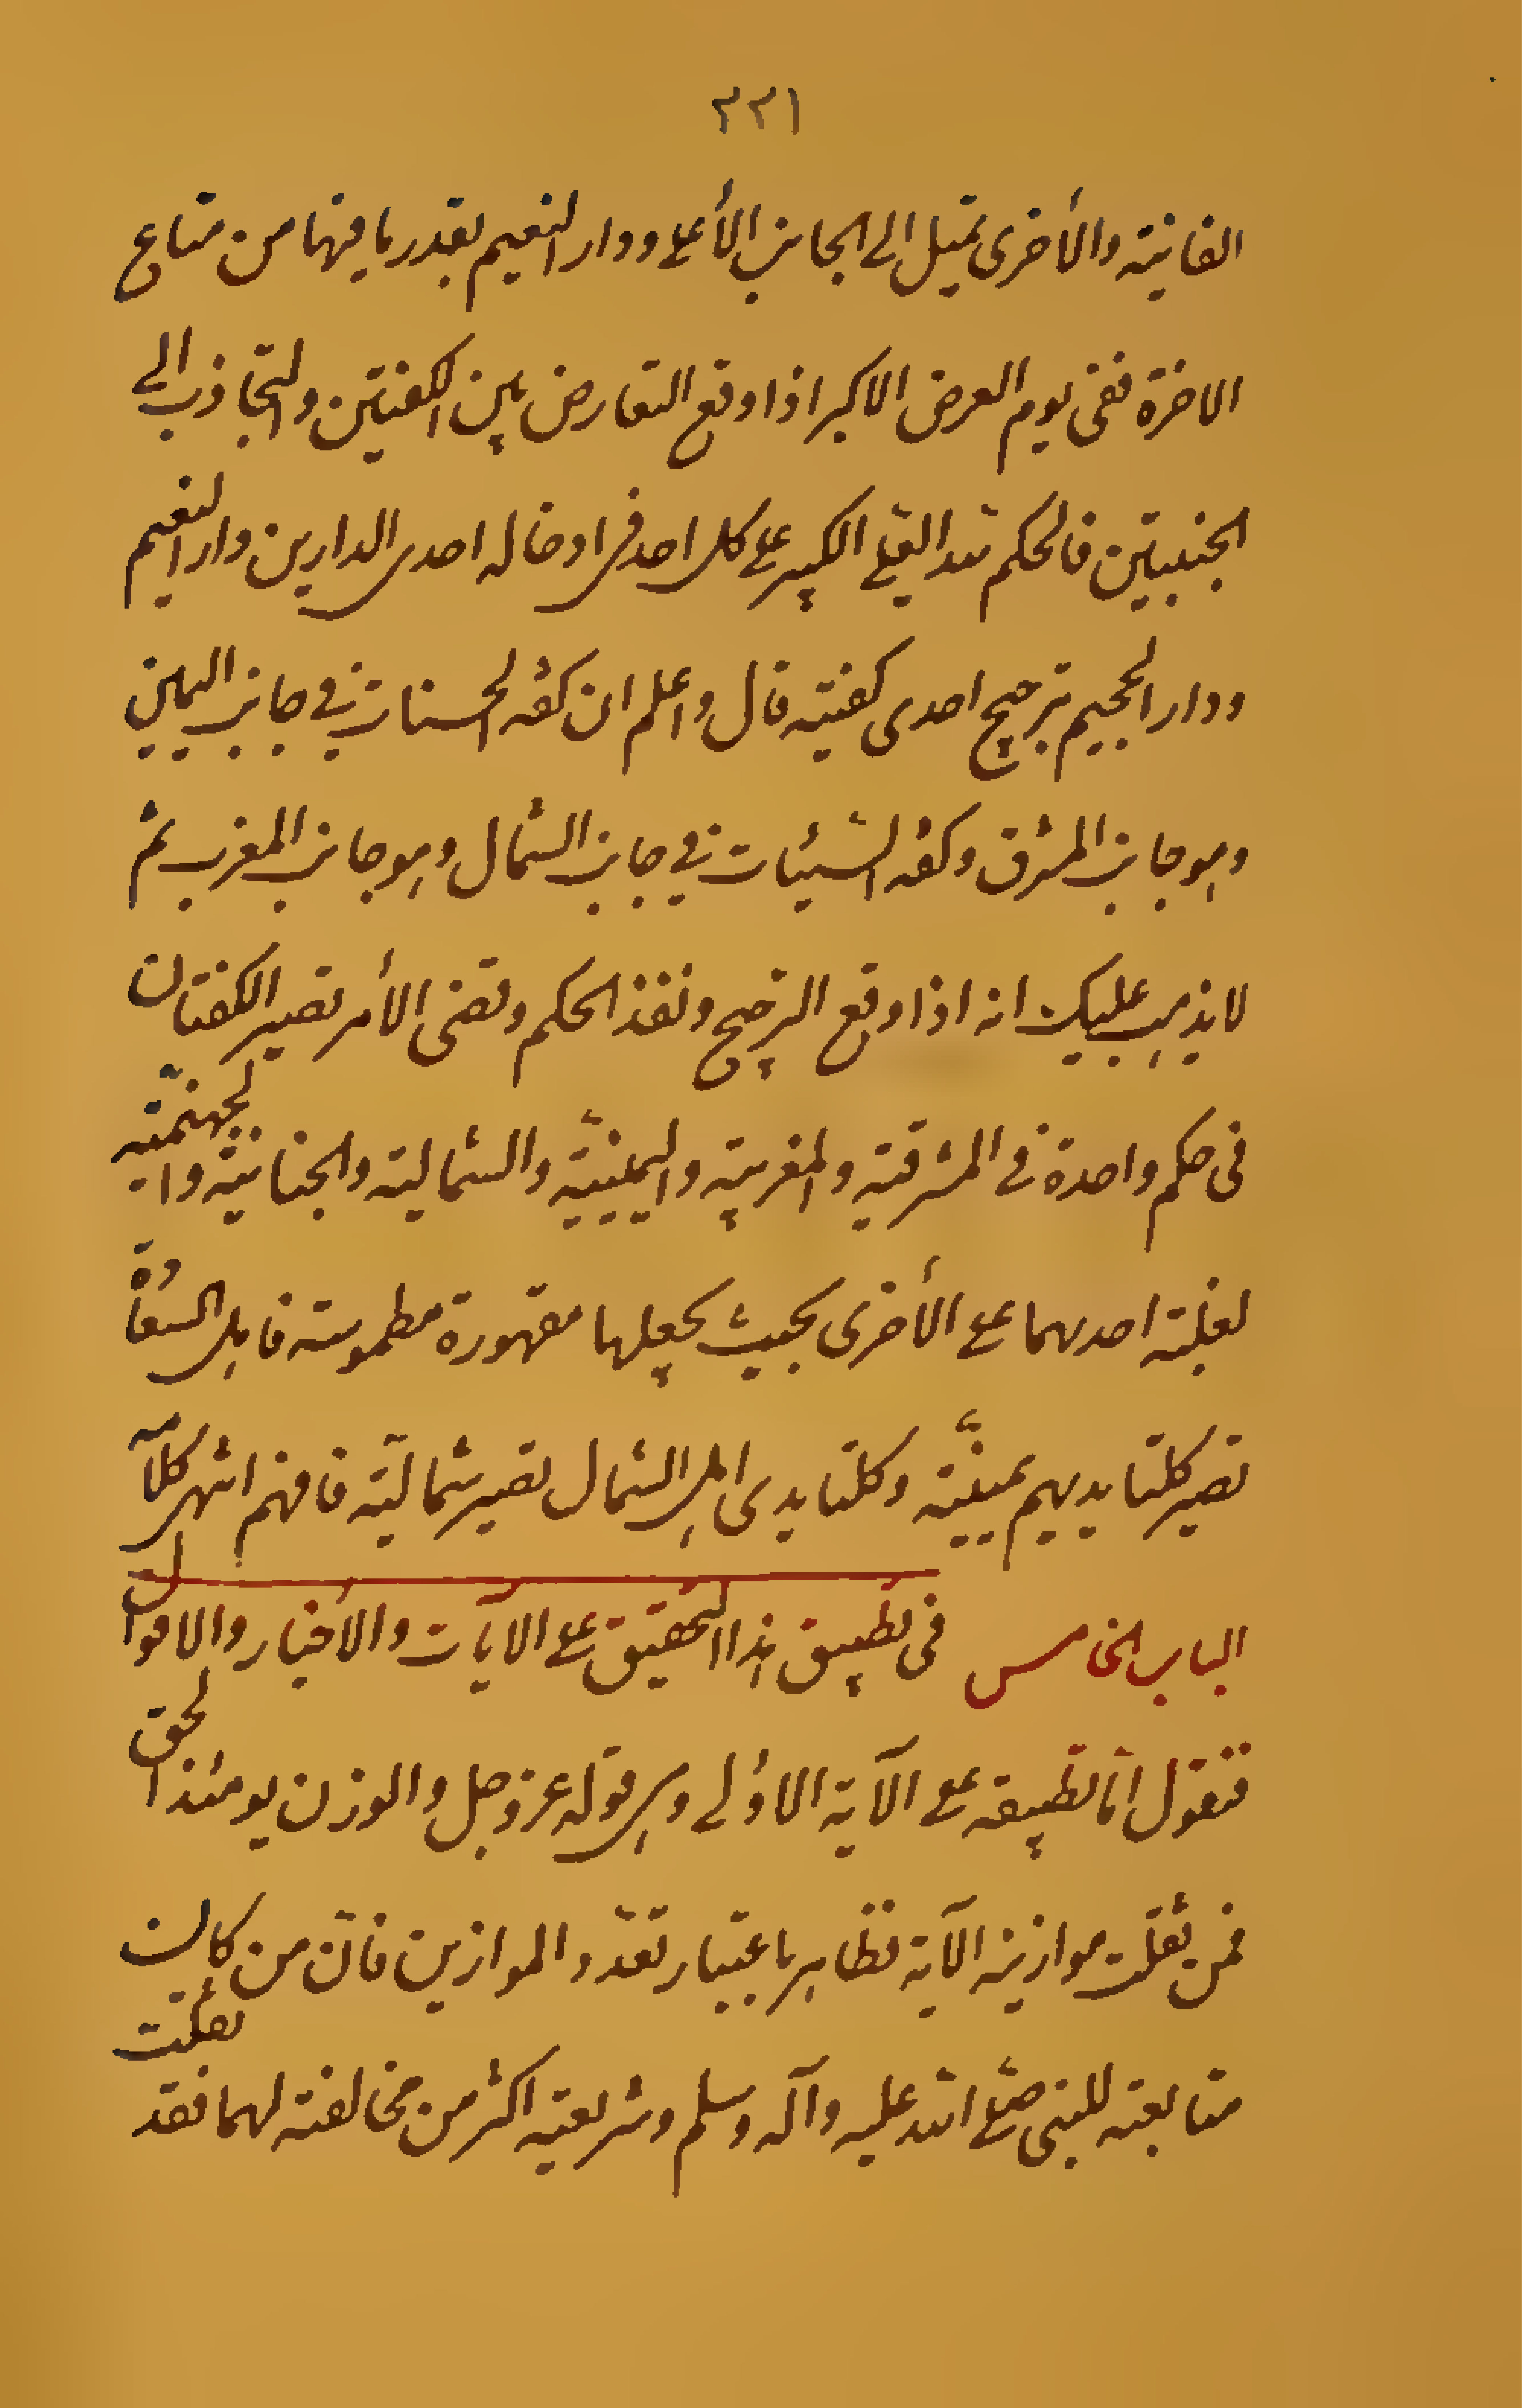 ٢٢١
الفانية والأخرى تميل الى الجانب الأعلى ودار النعيم بقدر ما فيها من متاع
الاخرة ففى يوم العرض الاكبر اذا وقع التعارض بين الكفتين والتجاذب الى
الجنبتين فالحكم لله العلي الكبير على كل احد فى ادخاله احدى الدارين دار النعيم
ودار الجحيم بترجيح احدى كفتيه قال واعلم ان كفه الحسنات في جانب اليمين
وهو جانب المشرق وكفه السّيئات في جانب الشمال وهو جانب المغرب ثم
لا يذهب عليك انه اذا وقع الترجيح ونفذ الحكم وقضى الأمر تصير الكفتان
فى حكم واحدة في المشرقية والمغربية واليمينيّة والشمالية والجنانية والجهنميّة
لغلبة احديهما على الأخرى بحيث يجعلها مقهورة مطموسة فاهل السعادة
تصير كلتا يديهم يمينيّة وكلتا يدى اهل الشمال تصير شماليّة فافهم انتهى كلامه
الباب الخامس فى تطبيق هذا التحقيق على الآيات والأخبار والاقوال
فنقول امّا تطبيقه على الآية الاولى وهى قوله عز وجل والوزن يومئذ الحق
فمن ثقلت موازينه الآية فظاهر باعتبار تعدّد الموازين فانّ من كان
متابعته للنبى صلّى الله عليه وآله وسلم وشريعته اكثر من مخالفته لهما فقد ثقلت